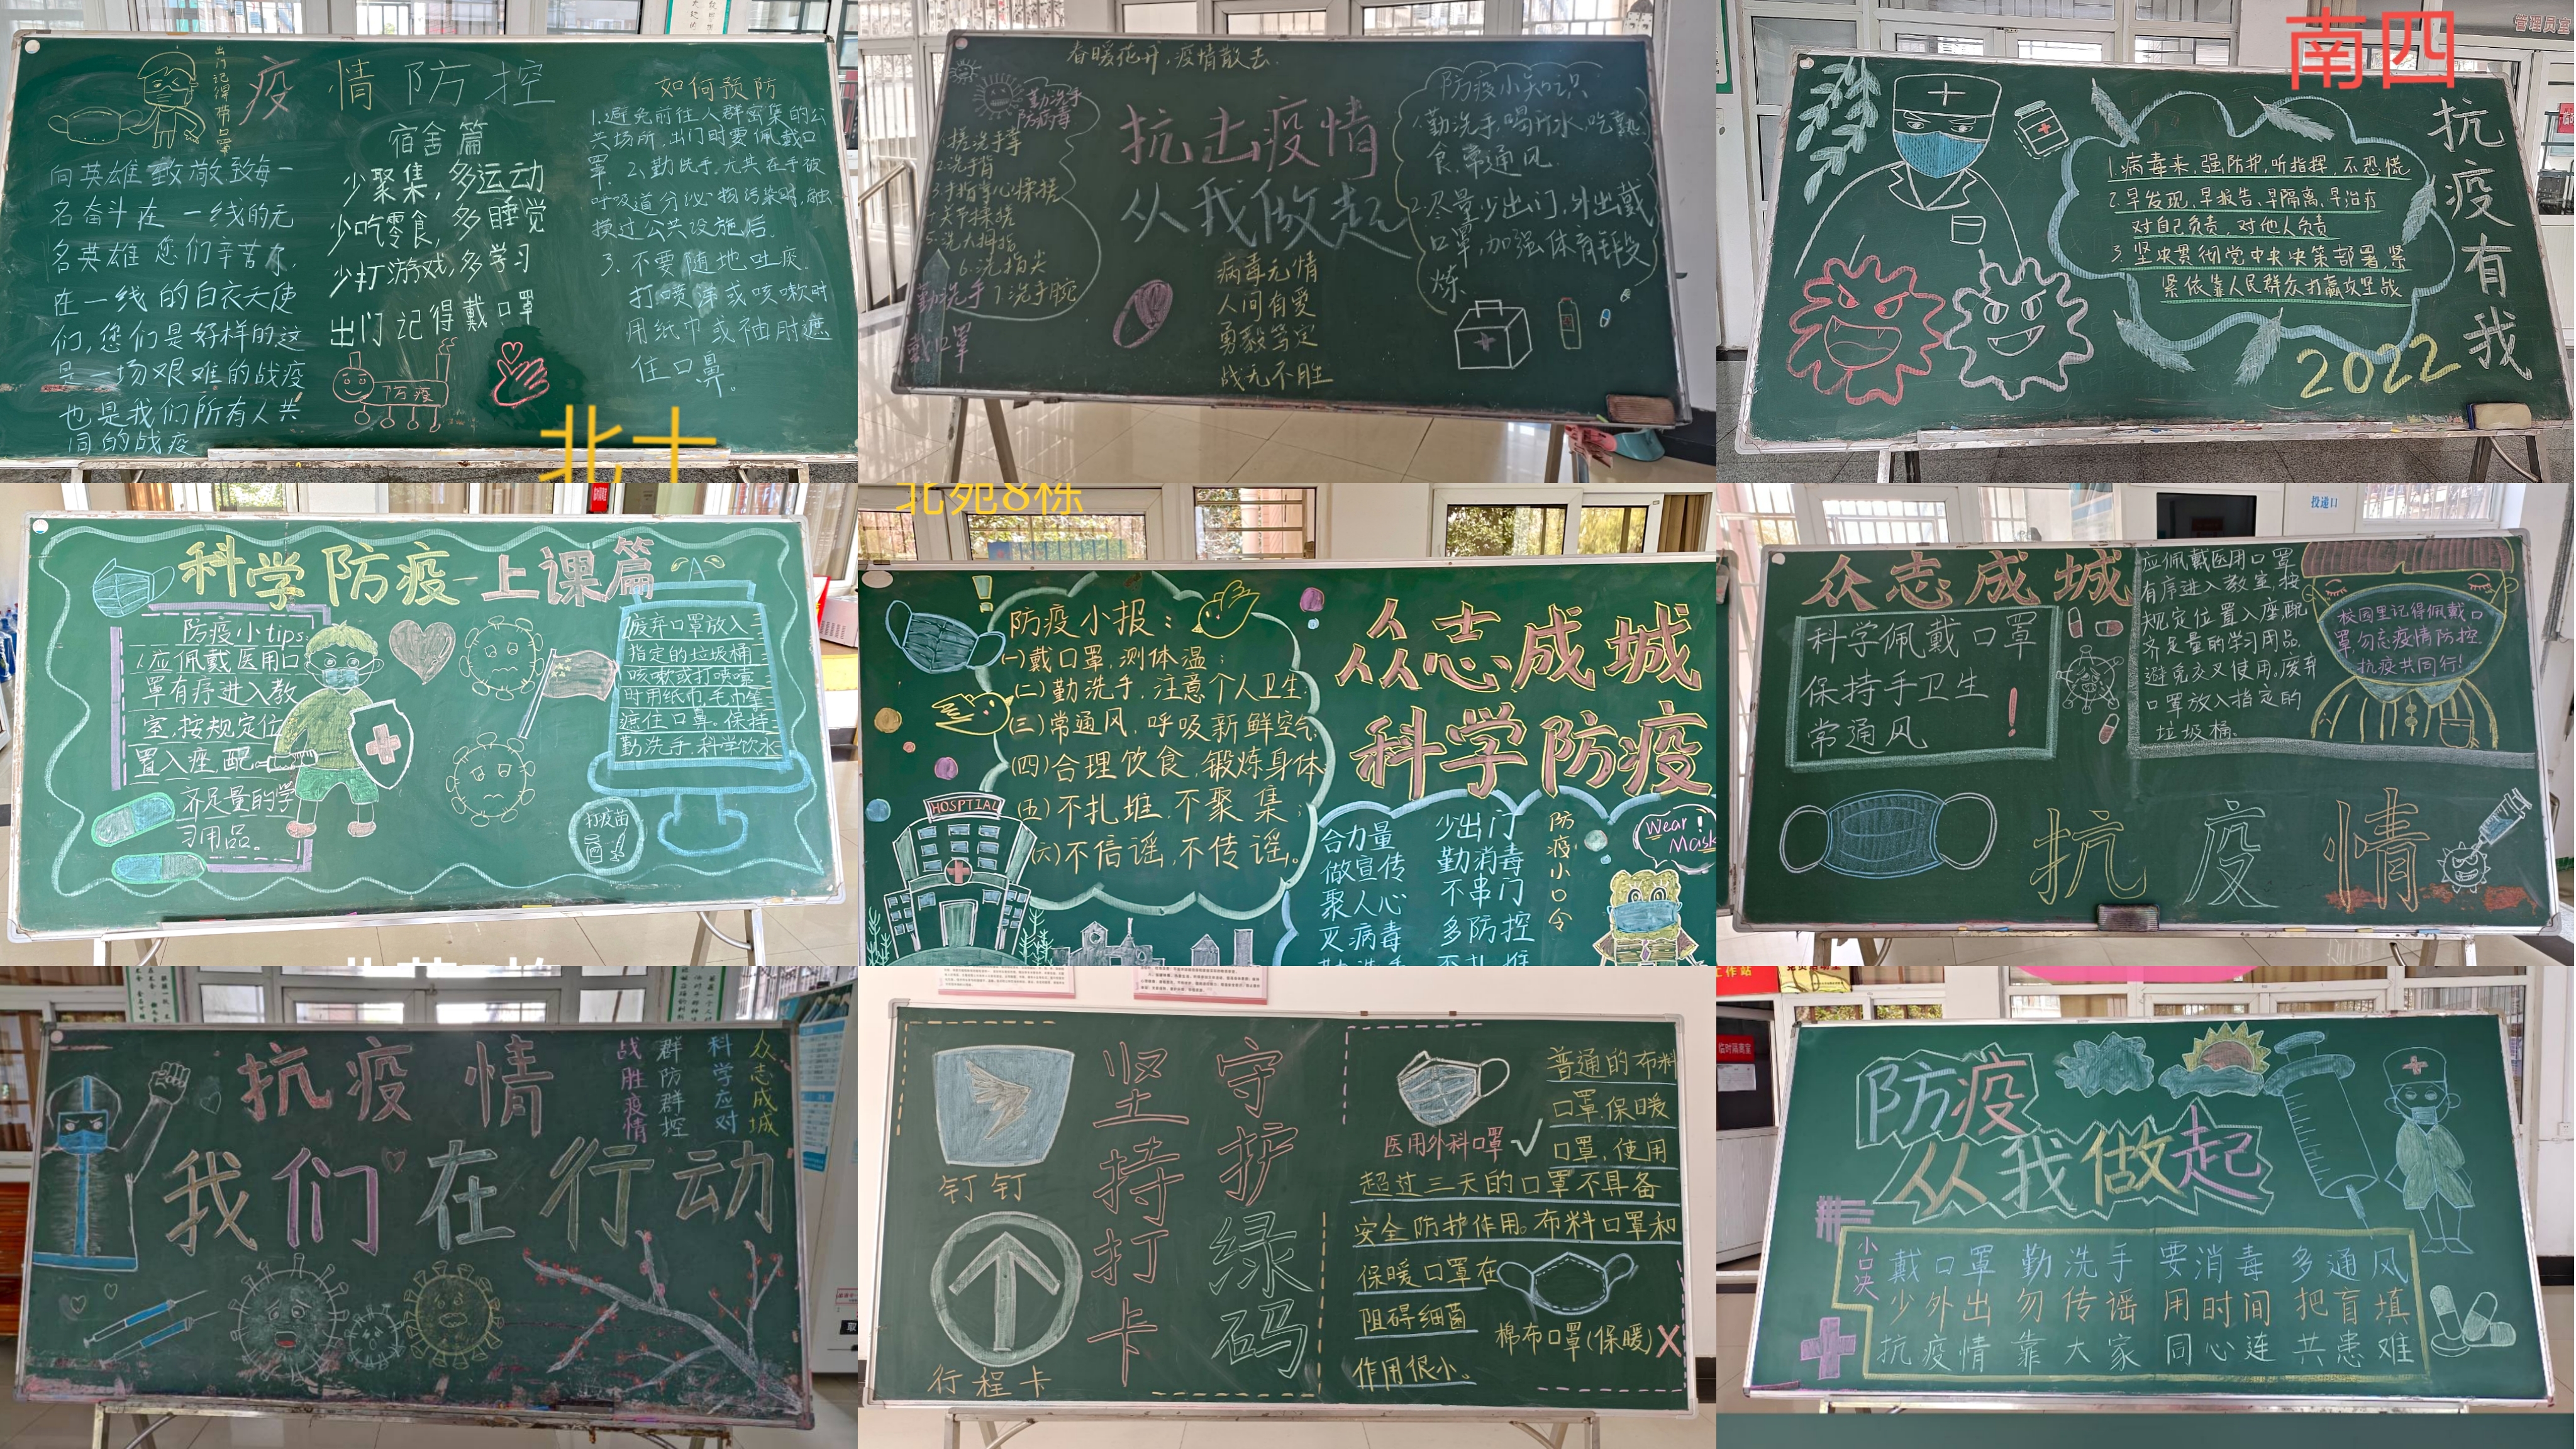 疫情防控
出门记得带口罩
向英雄致敬致每一
名奋斗在一线的无
名英雄 您们辛苦了,
在一线的白衣天使
们,您们是好样的这
是一场艰难的战疫
也是我们所有人共
同的战疫
宿舍篇
少聚集,多运动
少吃零食,多睡觉
少打游戏,多学习
出门记得戴口罩
防疫
如何预防
1.避免前往人群密集的公
共场所,出门时要佩戴口
罩. 2、勤洗手,尤其在手被
呼吸道分泌物污染时,触
摸过公共设施后.
3. 不要随地吐痰.
打喷涕或咳嗽时
用纸巾或袖肘遮
住口鼻。
春暖花开,疫情散去.
勤洗手
防病毒
1.搓洗手掌
2.洗手背
5.洗大拇指
6.洗指尖
7.洗手腕
勤洗手
戴口罩
抗击疫情
从我做起
病毒无情
人间有爱
勇毅笃定
战无不胜
防疫小知识
1.勤洗手,喝开水,吃熟
食,常通风
2.尽量少出门,外出戴
口罩,加强体育锻
炼
南四
管理员室
1.病毒来,强防护,听指挥,不恐慌
2.早发现、早报告、早隔离、早治疗
对自己负责,对他人负责
3.坚决贯彻党中央决策部署,紧
紧依靠人民群众打赢攻坚战
抗疫有我
2022
科学防疫—上课篇
防疫小tips:
1.应佩戴医用口
罩有序进入教
室,按规定位
置入座,配
齐足量的学
习用品。
废弃口罩放入
指定的垃圾桶
咳嗽或打喷嚏
时用纸巾毛巾等
遮住口罩。保持
勤洗手,科学饮水
打疫苗
北苑8栋
防疫小报:
(一)戴口罩,测体温;
(二)勤洗手,注意个人卫生;
(三)常通风,呼吸新鲜空气;
(四)合理饮食,锻炼身体
(五)不扎堆,不聚集;
(六)不信谣,不传谣。
HOSPTIAL
众志成城
科学防疫
合力量
做宣传
聚人心
灭病毒
少出门
勤消毒
不串门
多防控
防疫小口令
Wear!
Mask
投递口
众志成城
科学佩戴口罩
保持手卫生
常通风
应佩戴医用口罩
有序进入教室,按
规定位置入座,配
齐足量的学习用品.
避免交叉使用,废弃
口罩放入指定的
垃圾桶.
校园里记得佩戴口
罩,勿忘疫情防控
抗疫共同行!
抗疫情
抗疫情
我们在行动
众志成城
科学应对
群防群控
战胜疫情
钉钉
行程卡
坚持打卡
守护绿码
医用外科口罩
普通的布料
口罩.保暖
口罩,使用
超过三天的口罩不具备
安全防护作用。布料口罩和
保暖口罩在
阻碍细菌
作用很小。
棉布口罩(保暖)X
工作站
临时隔离室
防疫
从我做起
小口决
戴口罩 勤洗手 要消毒 多通风
少外出 勿传谣 用时间 把盲填
抗疫情 靠大家 同心连 共患难